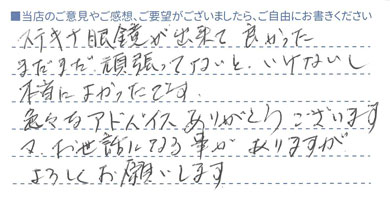 ■当店のご意見やご感想、ご要望がございましたら、ご自由にお書きください
ステキナ眼鏡が出来て良かった
まだまだ頑張ってないといけないし
本当によかったです。
色々なアドバイスありがとうございます
又お世話になる事がありますが
よろしくお願いします